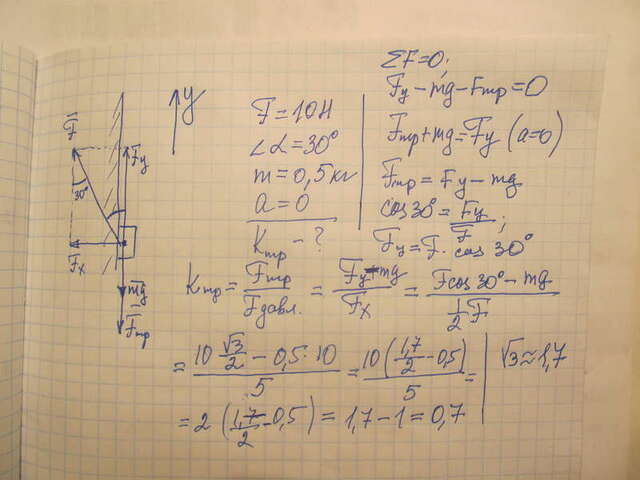 F⃗
30°
Fy
Fx
m̅g̅
F̅тр
y
F = 10Н
∠α = 30°
m = 0,5 кг
a = 0
Kтр - ?
ΣF = 0;
Fy - mg - Fтр = 0
Fтр + mg = Fy (a=0)
Fтр = Fy - mg
cos 30° = Fy/F ;
Fy = F · cos 30°
Kтр = Fтр/Fдавл. = (Fy - mg)/Fx = (Fcos 30° - mg)/(1/2 F)
= (10 √3/2 - 0,5 · 10)/5 = 10(1,7/2 - 0,5)/5 = | √3 ≈ 1,7
= 2 (1,7/2 - 0,5) = 1,7 - 1 = 0,7